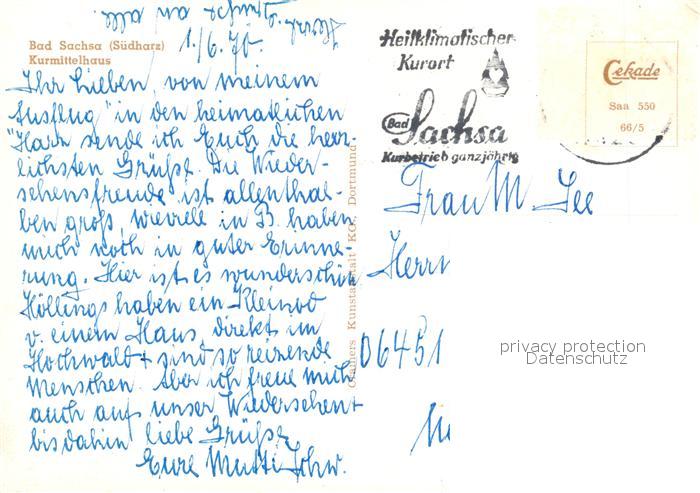 Herzl. Grüße an alle
Bad Sachsa (Südharz)
Kurmittelhaus
1./6. 70.
Ihr Lieben, von meinem
Ausflug" in den heimatlichen
"Harz sende ich Euch die herz-
lichsten Grüße. Die Wieder-
sehensfreude ist allenthal-
ben groß, wieviele in B. haben
mich noch in guter Erinne-
rung. Hier ist es wunderschön
Höllings haben ein Kleinod
v. einem Haus direkt im
Hochwald + sind so reizende
Menschen. Aber ich freue mich
auch auf unser Wiedersehen +
bis dahin liebe Grüße
Eure Mutti Schw.
Cramers Kunstanstalt KG., Dortmund
Heilklimatischer
Kurort
Bad Sachsa
Kurbetrieb ganzjährig
Cekade
Saa 550
66/5
Frau M
Herrn
privacy protection
Datenschutz